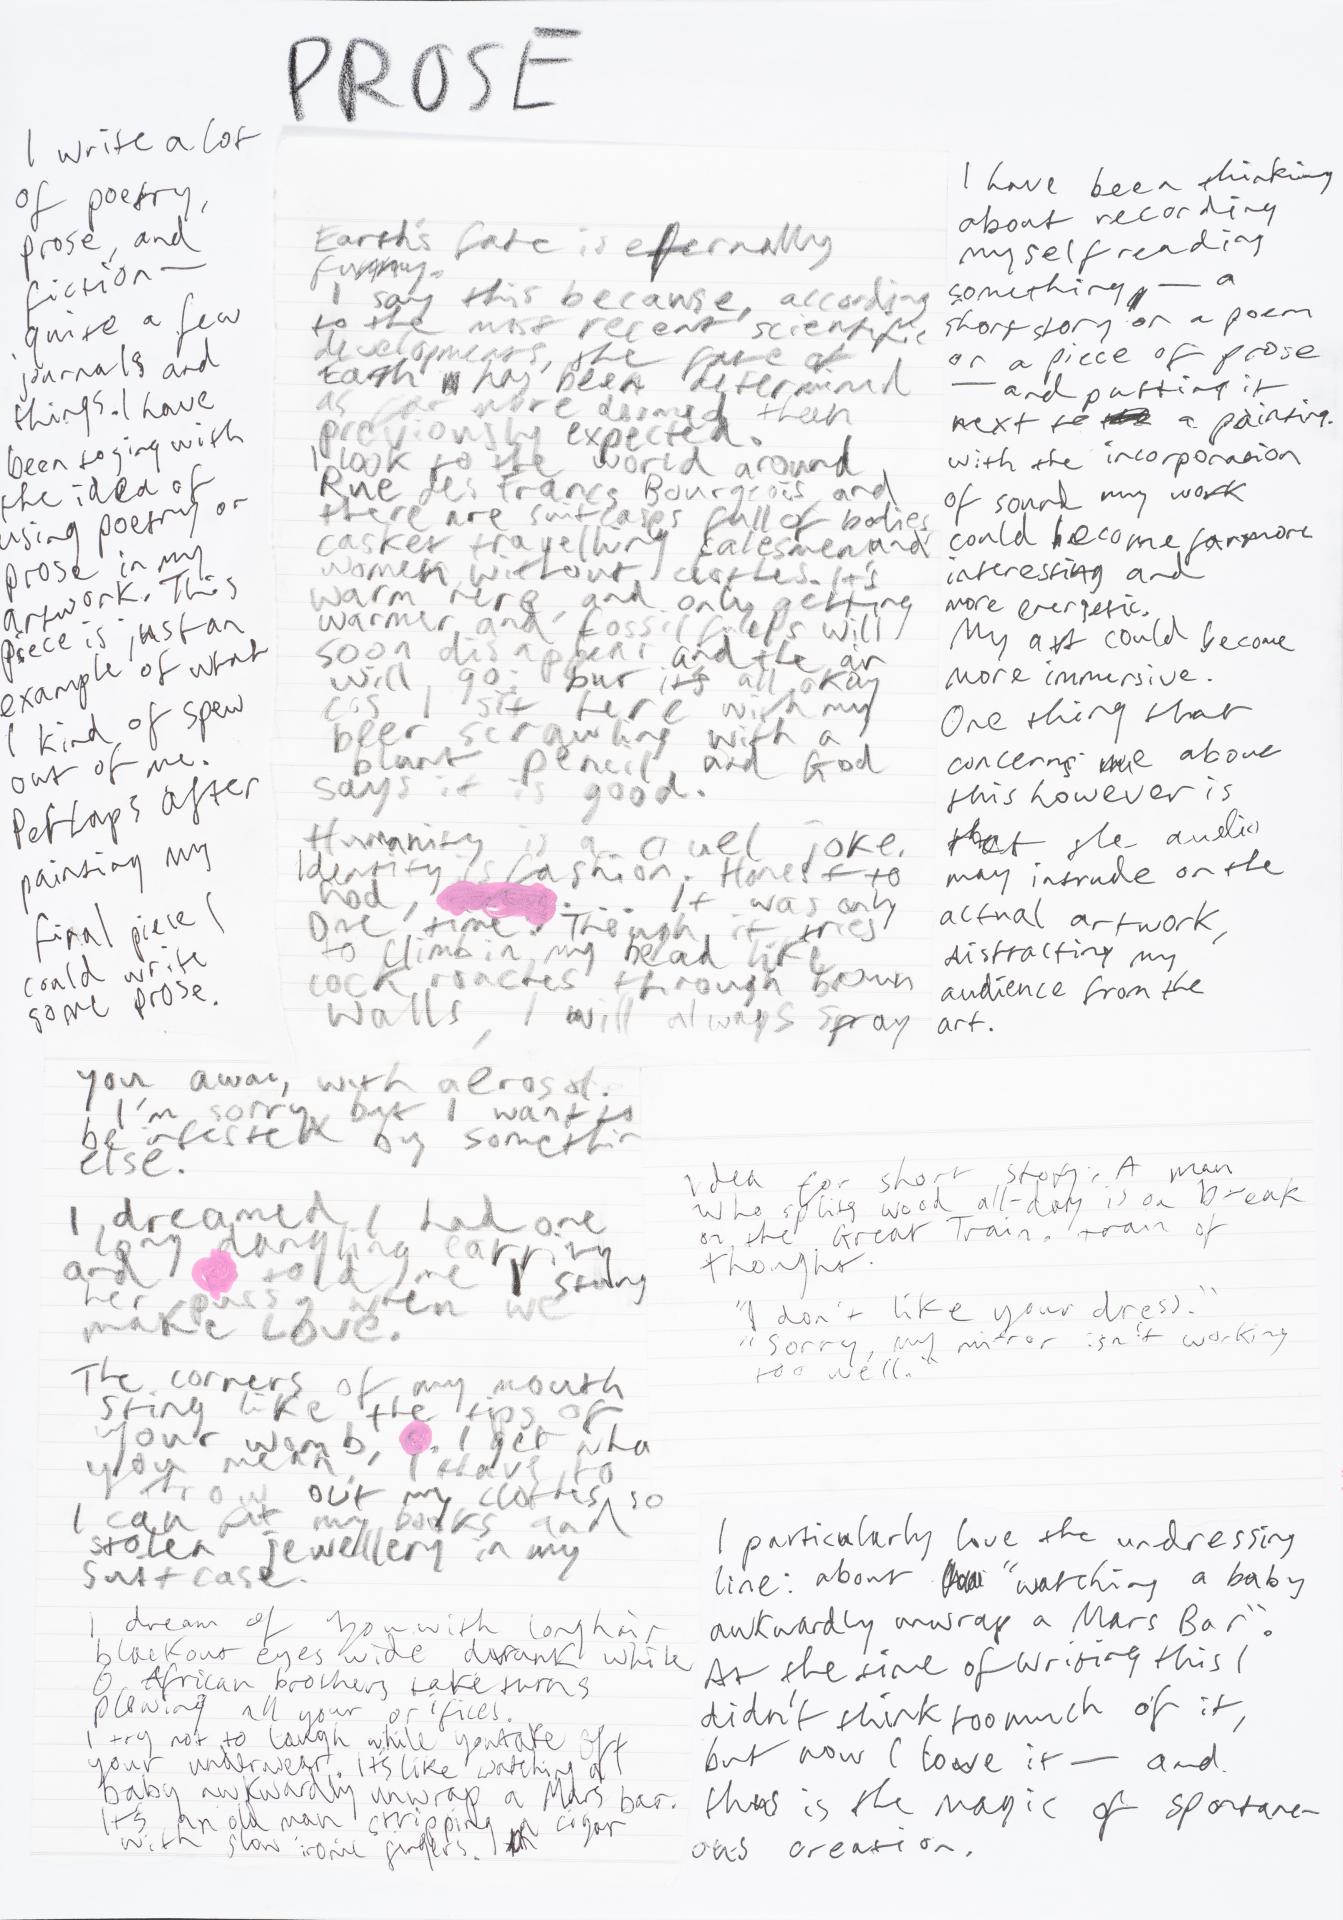 PROSE
I write a lot
of poetry,
prose, and
fiction —
quite a few
journals and
things. I have
been toying with
the idea of
using poetry or
prose in my
artwork. This
piece is just an
example of what
I kind of spew
out of me.
Perhaps after
painting my
final piece I
could write
some prose.
Earth's fate is eternally
funny.
I say this because, according
to the most recent scientific
developments, the fate of
Earth has been determined
as far more doomed than
previously expected.
I look to the world around
Rue des Francs Bourgeois and
there are suitcases full of bodies
casket travelling salesmen and
women without clothes. It's
warm here, and only getting
warmer and fossil fuels will
soon disappear and the air
will go: but it's all okay
cos I sit here with my
beer scrawling with a
blunt pencil, and God
says it is good.
Humanity is a cruel joke.
Identity is fashion. Honest to
God, . It was only
one time. Though it tries
to climb in my head like
cockroaches through brown
walls, I will always spray
you away, with aerosol.
I'm sorry but I want to
be infested by somethin
else.
I dreamed I had one
long dangling earring
and told me I stung
her pussy when we
make love.
The corners of my mouth
sting like the tips of
your womb, . I get wha
you mean, I have to
throw out my clothes so
I can fit my books and
stolen jewellery in my
suitcase.
I dream of you with long hair
blackout eyes wide drunk while
African brothers take turns
plowing all your orifices.
I try not to laugh while you take off
your underwear. It's like watching a
baby awkwardly unwrap a Mars bar.
It's an old man stripping a cigar
with slow ironic fingers.
I have been thinking
about recording
myself reading
something, — a
short story or a poem
or a piece of prose
— and putting it
next to a painting.
with the incorporation
of sound my work
could become far more
interesting and
more energetic.
My art could become
more immersive.
One thing that
concerns me about
this however is
that the audio
may intrude on the
actual artwork,
distracting my
audience from the
art.
Idea for short story: A man
who splits wood all-day is on break
on the Great Train. train of
thought.
"I don't like your dress."
"Sorry, my mirror isn't working
too well."
I particularly love the undressing
line: about "watching a baby
awkwardly unwrap a Mars Bar".
At the time of writing this I
didn't think too much of it,
but now I love it — and
this is the magic of spontane-
ous creation.